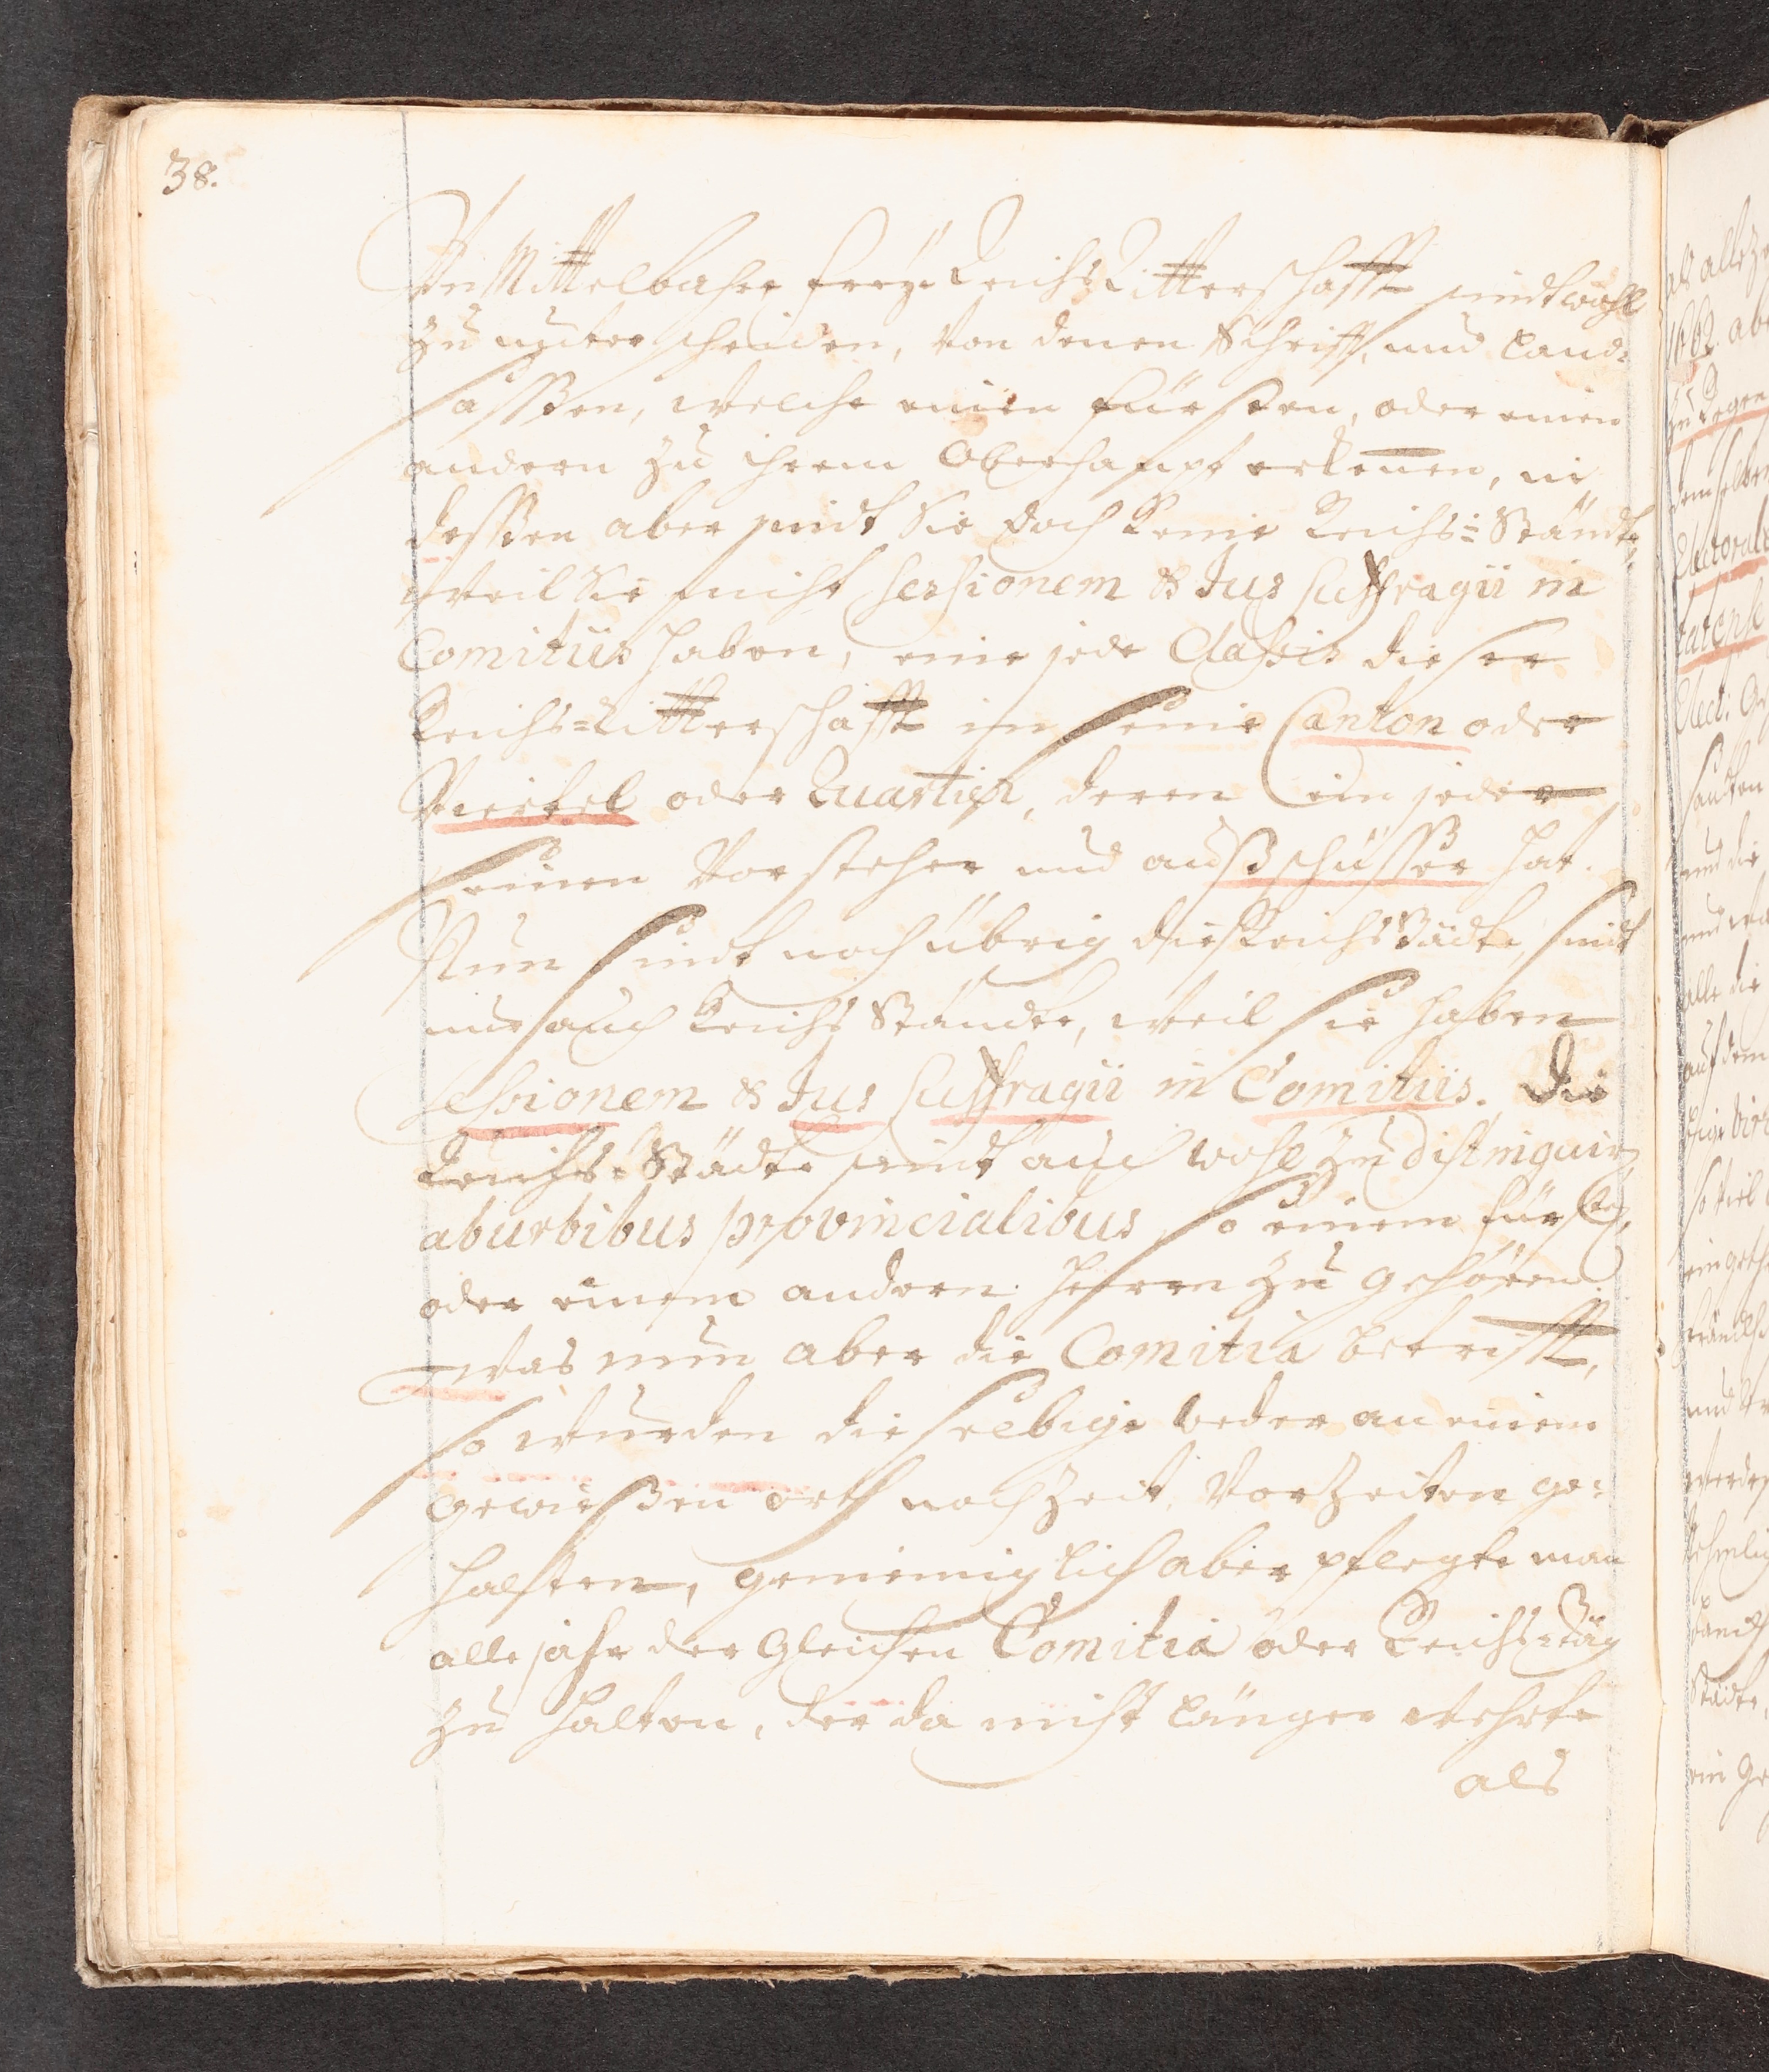 38.
Un Mittelbahre freye Reichs Ritterschafft seindt wohl
zu unterscheiden, von denen Schrifft, und Land-
sassßen, welche einen Fürsten, oder einen
andern zu ihrem Oberhaupt erkennen, in
dessßen aber seindt sie doch keine Reichs-Stände,
weil sie nicht Sessionem & Jus Suffragii in
Comitiis haben, eine jede Classis dieser
Reichs-Ritterschafft in seine Canton oder
Viertel oder Quartier, deren ein jeder
seinen Vorsteher und außschüsser hat.
Nun seindt noch übrig die Reichs Städte, seindt
nun auch Reichs Stände, weil sie haben
Sessionem & Jus Suffragii in Comitiis. Die
Reichs-Städte seindt auch wohl zu distinguirn
ab urbibus provincialibus, so einem Fürsten,
oder einem andern Herren zu gehören.
was nun aber die Comitia betrifft,
so wurden die selbige weder an einem
gewießen orth noch Zeit, Vor Zeiten ge-
halten, gemeiniglich aber pflegte man
alle jahr der gleichen Comitia oder Reichs-täg
zu halten, der da nicht länger wehrte
als